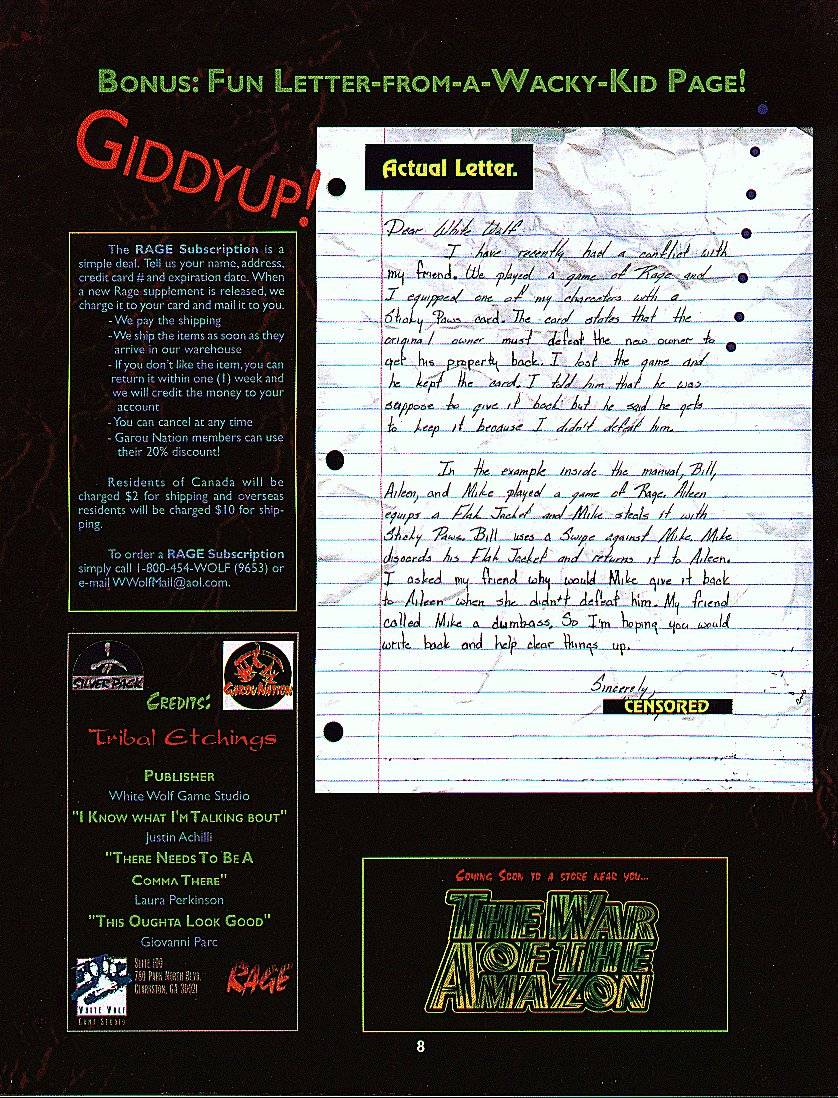 BONUS: FUN LETTER-FROM-A-WACKY-KID PAGE!
GIDDYUP!
The RAGE Subscription is a
simple deal. Tell us your name, address,
credit card # and expiration date. When
a new Rage supplement is released, we
charge it to your card and mail it to you.
- We pay the shipping
- We ship the items as soon as they
arrive in our warehouse
- If you don't like the item, you can
return it within one (1) week and
we will credit the money to your
account
- You can cancel at any time
- Garou Nation members can use
their 20% discount!
Residents of Canada will be
charged $2 for shipping and overseas
residents will be charged $10 for ship-
ping.
To order a RAGE Subscription
simply call 1-800-454-WOLF (9653) or
e-mail WWolfMail@aol.com.
Actual Letter.
Dear White Wolf
I have recently had a conflict with
my friend. We played a game of Rage and
I equipped one of my charectors with a
Sticky Paws card. The card states that the
original owner must defeat the new owner to
get his property back. I lost the game and
he kept the card. I told him that he was
suppose to give it back but he said he gets
to keep it because I didn't defeat him.
In the example inside the manual, Bill,
Aileen, and Mike played a game of Rage. Aileen
equips a Flak Jacket and Mike steals it with
Sticky Paws. Bill uses a Swipe against Mike. Mike
discards his Flak Jacket and returns it to Aileen.
I asked my friend why would Mike give it back
to Aileen when she didn't defeat him. My friend
called Mike a dumbass. So I'm hoping you would
write back and help clear things up.
Sincerely,
CENSORED
SILVER PACK
GAROU NATION
CREDITS:
Tribal Etchings
PUBLISHER
White Wolf Game Studio
"I KNOW WHAT I'M TALKING BOUT"
Justin Achilli
"THERE NEEDS TO BE A
COMMA THERE"
Laura Perkinson
"THIS OUGHTA LOOK GOOD"
Giovanni Parc
WHITE WOLF
GAME STUDIO
SUITE 100
780 PARK NORTH BLVD.
CLARKSTON, GA 30021
RAGE
COMING SOON TO A STORE NEAR YOU...
THE WAR
OF THE
AMAZON
8